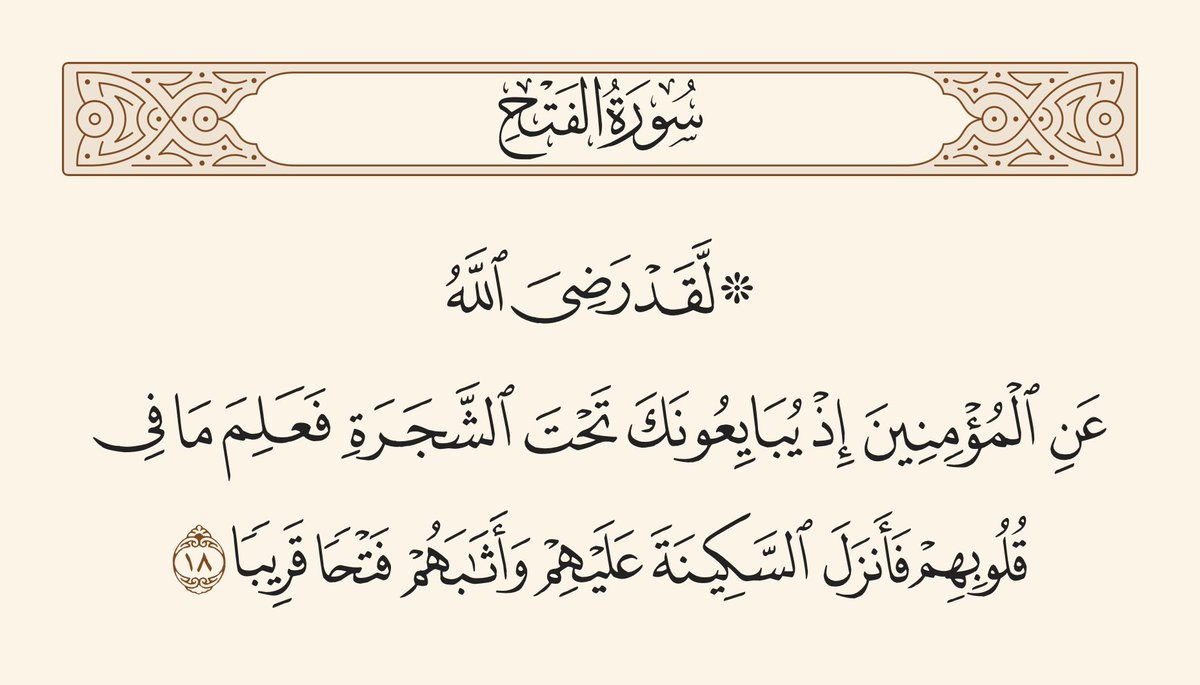 سُورَةُ الفَتْحِ
۞ لَّقَدْ رَضِىَ ٱللَّهُ
عَنِ ٱلْمُؤْمِنِينَ إِذْ يُبَايِعُونَكَ تَحْتَ ٱلشَّجَرَةِ فَعَلِمَ مَا فِى
قُلُوبِهِمْ فَأَنزَلَ ٱلسَّكِينَةَ عَلَيْهِمْ وَأَثَـٰبَهُمْ فَتْحًا قَرِيبًا ١٨